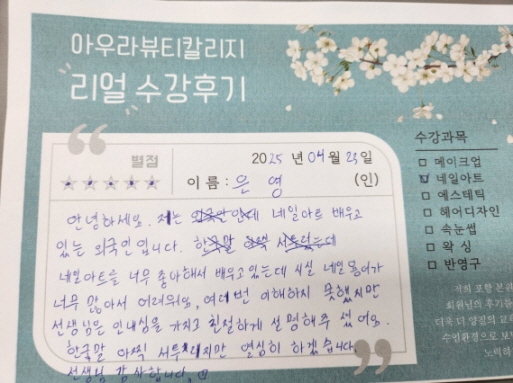 아우라뷰티칼리지
리얼 수강후기
별점
2025 년 04 월 23일
이름 : 은 영 (인)
수강과목
메이크업
네일아트
에스테틱
헤어디자인
속눈썹
왁싱
반영구
안녕하세요. 저는 외국인인데 네일아트 배우고
있는 외국인 입니다. 한국말 아직 서투렀는데
네일아트를 너무 좋아해서 배우고 있는데 사실 네일 용어가
너무 많아서 어려워요, 여러번 이해하지 못했지만
선생님은 인내심을 가지고 친절하게 설명해주셨어요.
한국말 아직 서투르지만 열심히 하겠습니다.
선생님 감사합니다.
저희 포항 본원
회원님의 후기를
더욱 더 양질의 교육
수업환경으로 보
노력하